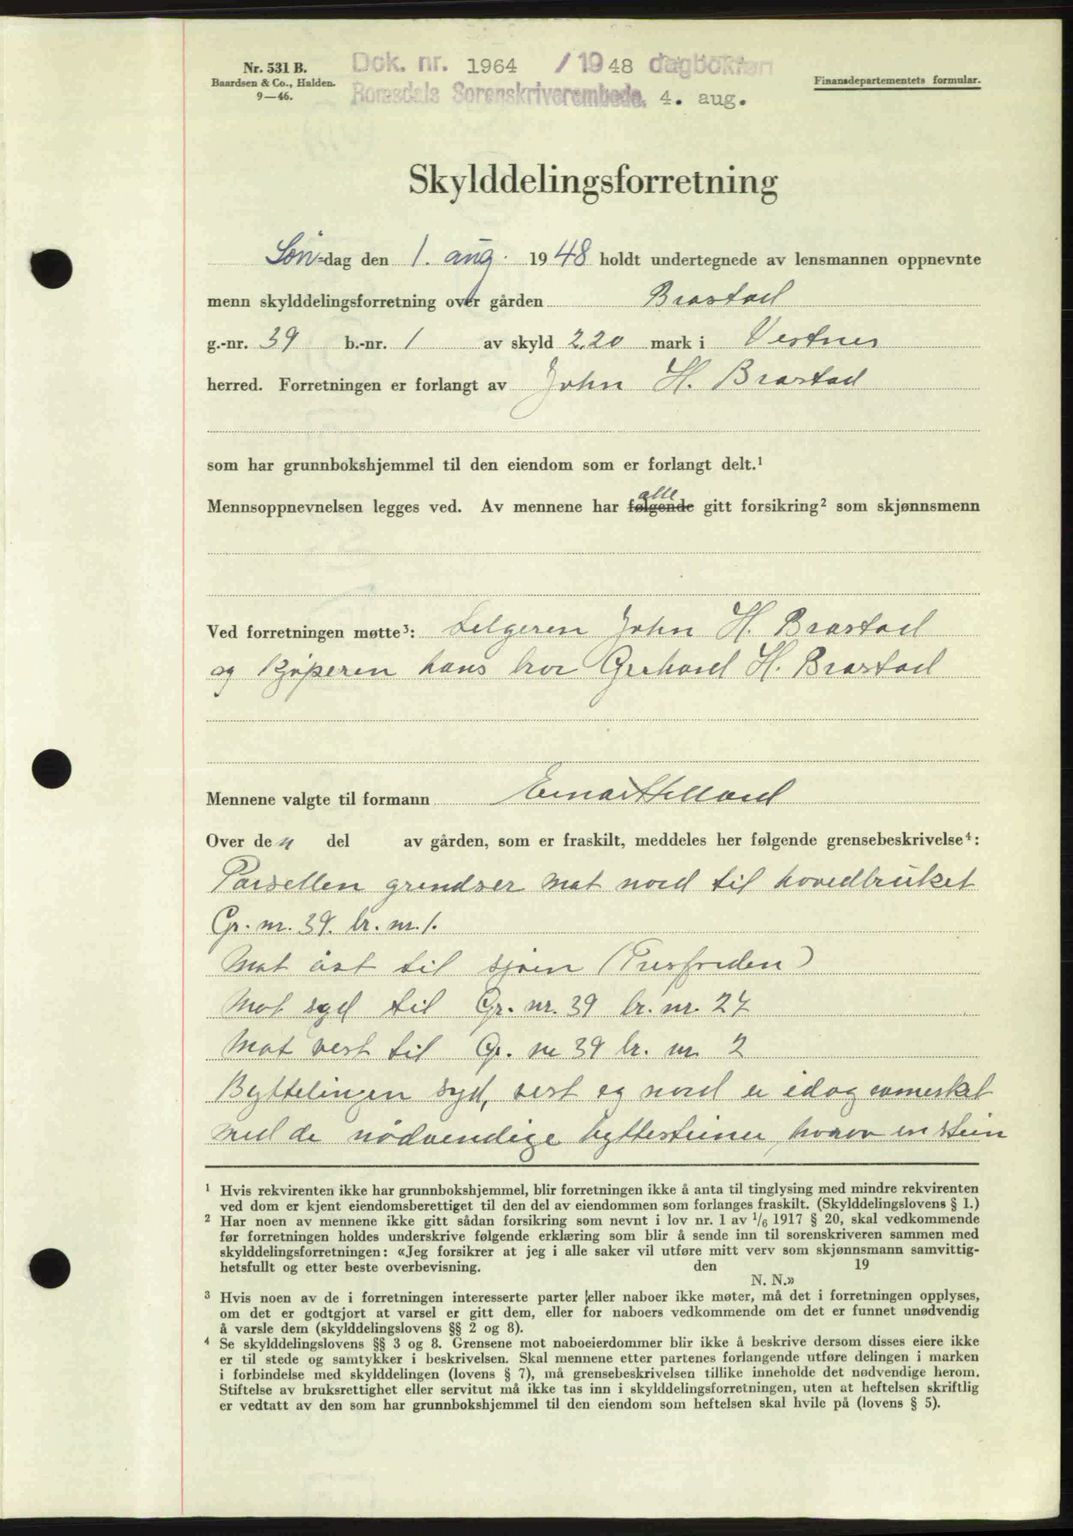 Nr. 531 B.
Baardsen & Co., Halden.
9—46.
Dok. nr. 1964 / 1948 dagbokført
Romsdals Sorenskriverembede. 4. aug.
Finansdepartementets formular.
Skylddelingsforretning
Søn-dag den 1. aug. 1948 holdt undertegnede av lensmannen oppnevnte
menn skylddelingsforretning over gården Brastad
g.-nr. 39 b.-nr. 1 av skyld 2.20 mark i Vestnes
herred. Forretningen er forlangt av John H. Brastad
som har grunnbokshjemmel til den eiendom som er forlangt delt.¹
alle
Mennsoppnevnelsen legges ved. Av mennene har følgende gitt forsikring² som skjønnsmenn
Ved forretningen møtte³: Selgeren John H. Brastad
og kjøperen hans bror Gerhard H. Brastad
Mennene valgte til formann Einar Helland
Over de n del av gården, som er fraskilt, meddeles her følgende grensebeskrivelse⁴:
Parsellen grendser mot nord til hovedbruket
Gr. nr. 39. br. nr. 1.
Mot øst til sjøen (Tresfjorden)
Mot syd til Gr. nr. 39 br. nr. 27
Mot vest til Gr. nr 39 br. nr 2
Byttelingen syd, vest og nord er idag avmerket
med de nødvendige byttesteiner, hvorav en stein
¹ Hvis rekvirenten ikke har grunnbokshjemmel, blir forretningen ikke å anta til tinglysing med mindre rekvirenten
ved dom er kjent eiendomsberettiget til den del av eiendommen som forlanges fraskilt. (Skylddelingslovens § 1.)
² Har noen av mennene ikke gitt sådan forsikring som nevnt i lov nr. 1 av 1/6 1917 § 20, skal vedkommende
før forretningen holdes underskrive følgende erklæring som blir å sende inn til sorenskriveren sammen med
skylddelingsforretningen: «Jeg forsikrer at jeg i alle saker vil utføre mitt verv som skjønnsmann samvittig-
hetsfullt og etter beste overbevisning. den 19
N. N.»
³ Hvis noen av de i forretningen interesserte parter eller naboer ikke møter, må det i forretningen opplyses,
om det er godtgjort at varsel er gitt dem, eller for naboers vedkommende om det er funnet unødvendig
å varsle dem (skylddelingslovens §§ 2 og 8).
⁴ Se skylddelingslovens §§ 3 og 8. Grensene mot naboeierdommer blir ikke å beskrive dersom disses eiere ikke
er til stede og samtykker i beskrivelsen. Skal mennene etter partenes forlangende utføre delingen i marken
i forbindelse med skylddelingen (lovens § 7), må grensebeskrivelsen tillike inneholde det nødvendige herom.
Stiftelse av bruksrettighet eller servitut må ikke tas inn i skylddelingsforretningen, uten at heftelsen skriftlig
er vedtatt av den som har grunnbokshjemmel til den eiendom som heftelsen skal hvile på (lovens § 5).